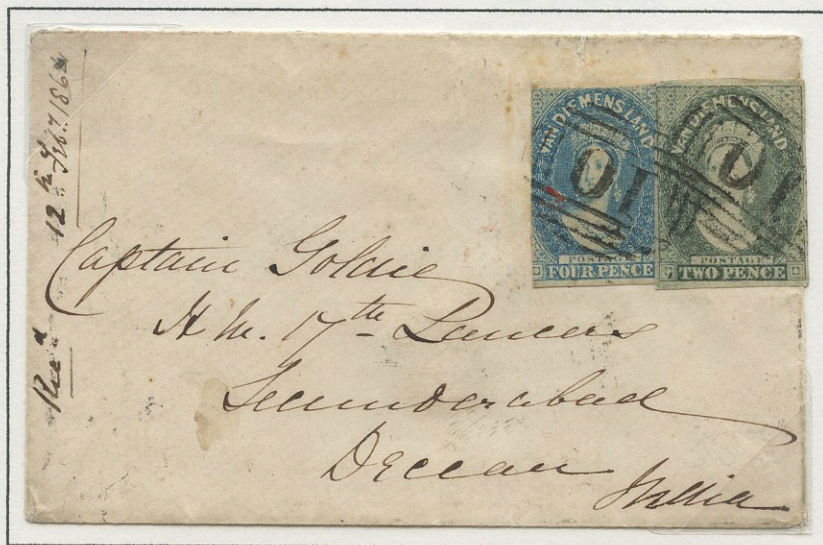 Recd 12th Feby. 1862
VAN DIEMENS LAND
POSTAGE
FOUR PENCE
VAN DIEMENS LAND
POSTAGE
TWO PENCE
Captain Goldie
H. M. 17th Lancers
Secunderabad
Deccan
India